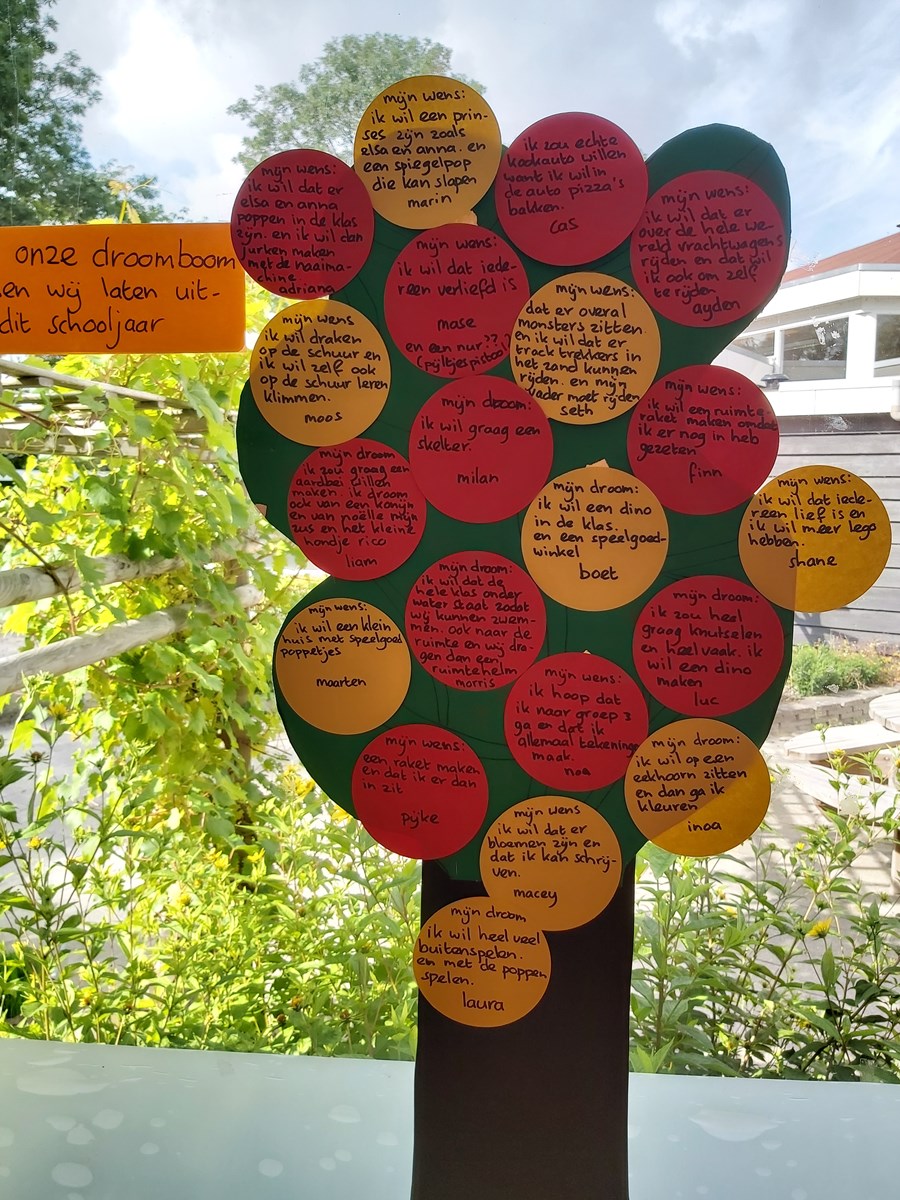 onze droomboom
wij laten uit-
dit schooljaar
mijn wens:
ik wil een prin-
ses zijn zoals
elsa en anna. en
een spiegelpop
die kan slapen
marin
ik zou echte
kookauto willen
want ik wil in
de auto pizza's
bakken.
cas
mijn wens:
ik wil dat er
elsa en anna
poppen in de klas
zijn. en ik wil dan
jurken maken
met de naaima-
chine
adriana
mijn wens:
ik wil dat er
over de hele we-
reld vrachtwagens
rijden en dat wil
ik ook om zelf
te rijden
ayden
mijn wens:
ik wil dat iede-
reen verliefd is
mase
en een nur???
(pijltjespistool)
mijn wens:
dat er overal
monsters zitten.
en ik wil dat er
track trekkers in
het zand kunnen
rijden. en mijn
vader moet rijden
seth
mijn wens
ik wil draken
op de schuur en
ik wil zelf ook
op de schuur leren
klimmen.
moos
mijn droom:
ik wil graag een
skelter.
milan
mijn wens:
ik wil een ruimte-
raket maken omdat
ik er nog in heb
gezeten
finn
mijn droom
ik zou graag een
aardbei willen
maken. ik droom
ook van een konijn
en van noëlle mijn
zus en het kleine
hondje rico
liam
mijn droom:
ik wil een dino
in de klas.
en een speelgoed-
winkel
boet
mijn wens:
ik wil dat iede-
reen lief is en
ik wil meer lego
hebben.
shane
mijn droom:
ik wil dat de
hele klas onder
water staat zodat
wij kunnen zwem-
men. ook naar de
ruimte en wij dra-
gen dan een
ruimtehelm
morris
mijn droom:
ik zou heel
graag knutselen
en heel vaak. ik
wil een dino
maken
luc
mijn wens:
ik wil een klein
huis met speelgoed
poppetjes
maarten
mijn wens:
ik hoop dat
ik naar groep 3
ga en dat ik
allemaal tekeningen
maak.
noa
mijn wens:
een raket maken
en dat ik er dan
in zit
pijke
mijn droom:
ik wil op een
eekhoorn zitten
en dan ga ik
kleuren
inoa
mijn wens
ik wil dat er
bloemen zijn en
dat ik kan schrij-
ven.
macey
mijn droom
ik wil heel veel
buitenspelen.
en met de poppen
spelen.
laura